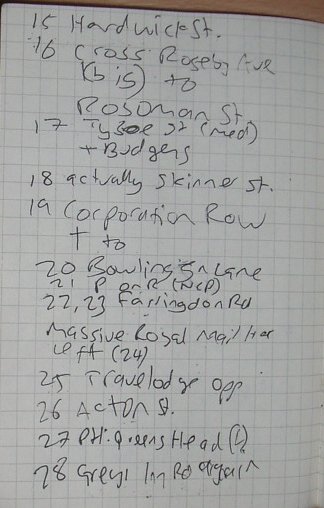 15 Hardwick St.
16 Cross Roseby Ave
(b is) to
Rosoman St.
17 Tysoe St (med)
+ Budgens
18 actually Skinner St.
19 Corporation Row
† to
20 Bowling Gn Lane
21 P on R (NCP)
22, 23 Farringdon Rd
Massive Royal Mail HQ
left (24)
25 Travelodge opp
26 Acton St.
27 PH. Queens Head (L)
28 Greys Inn Rd again